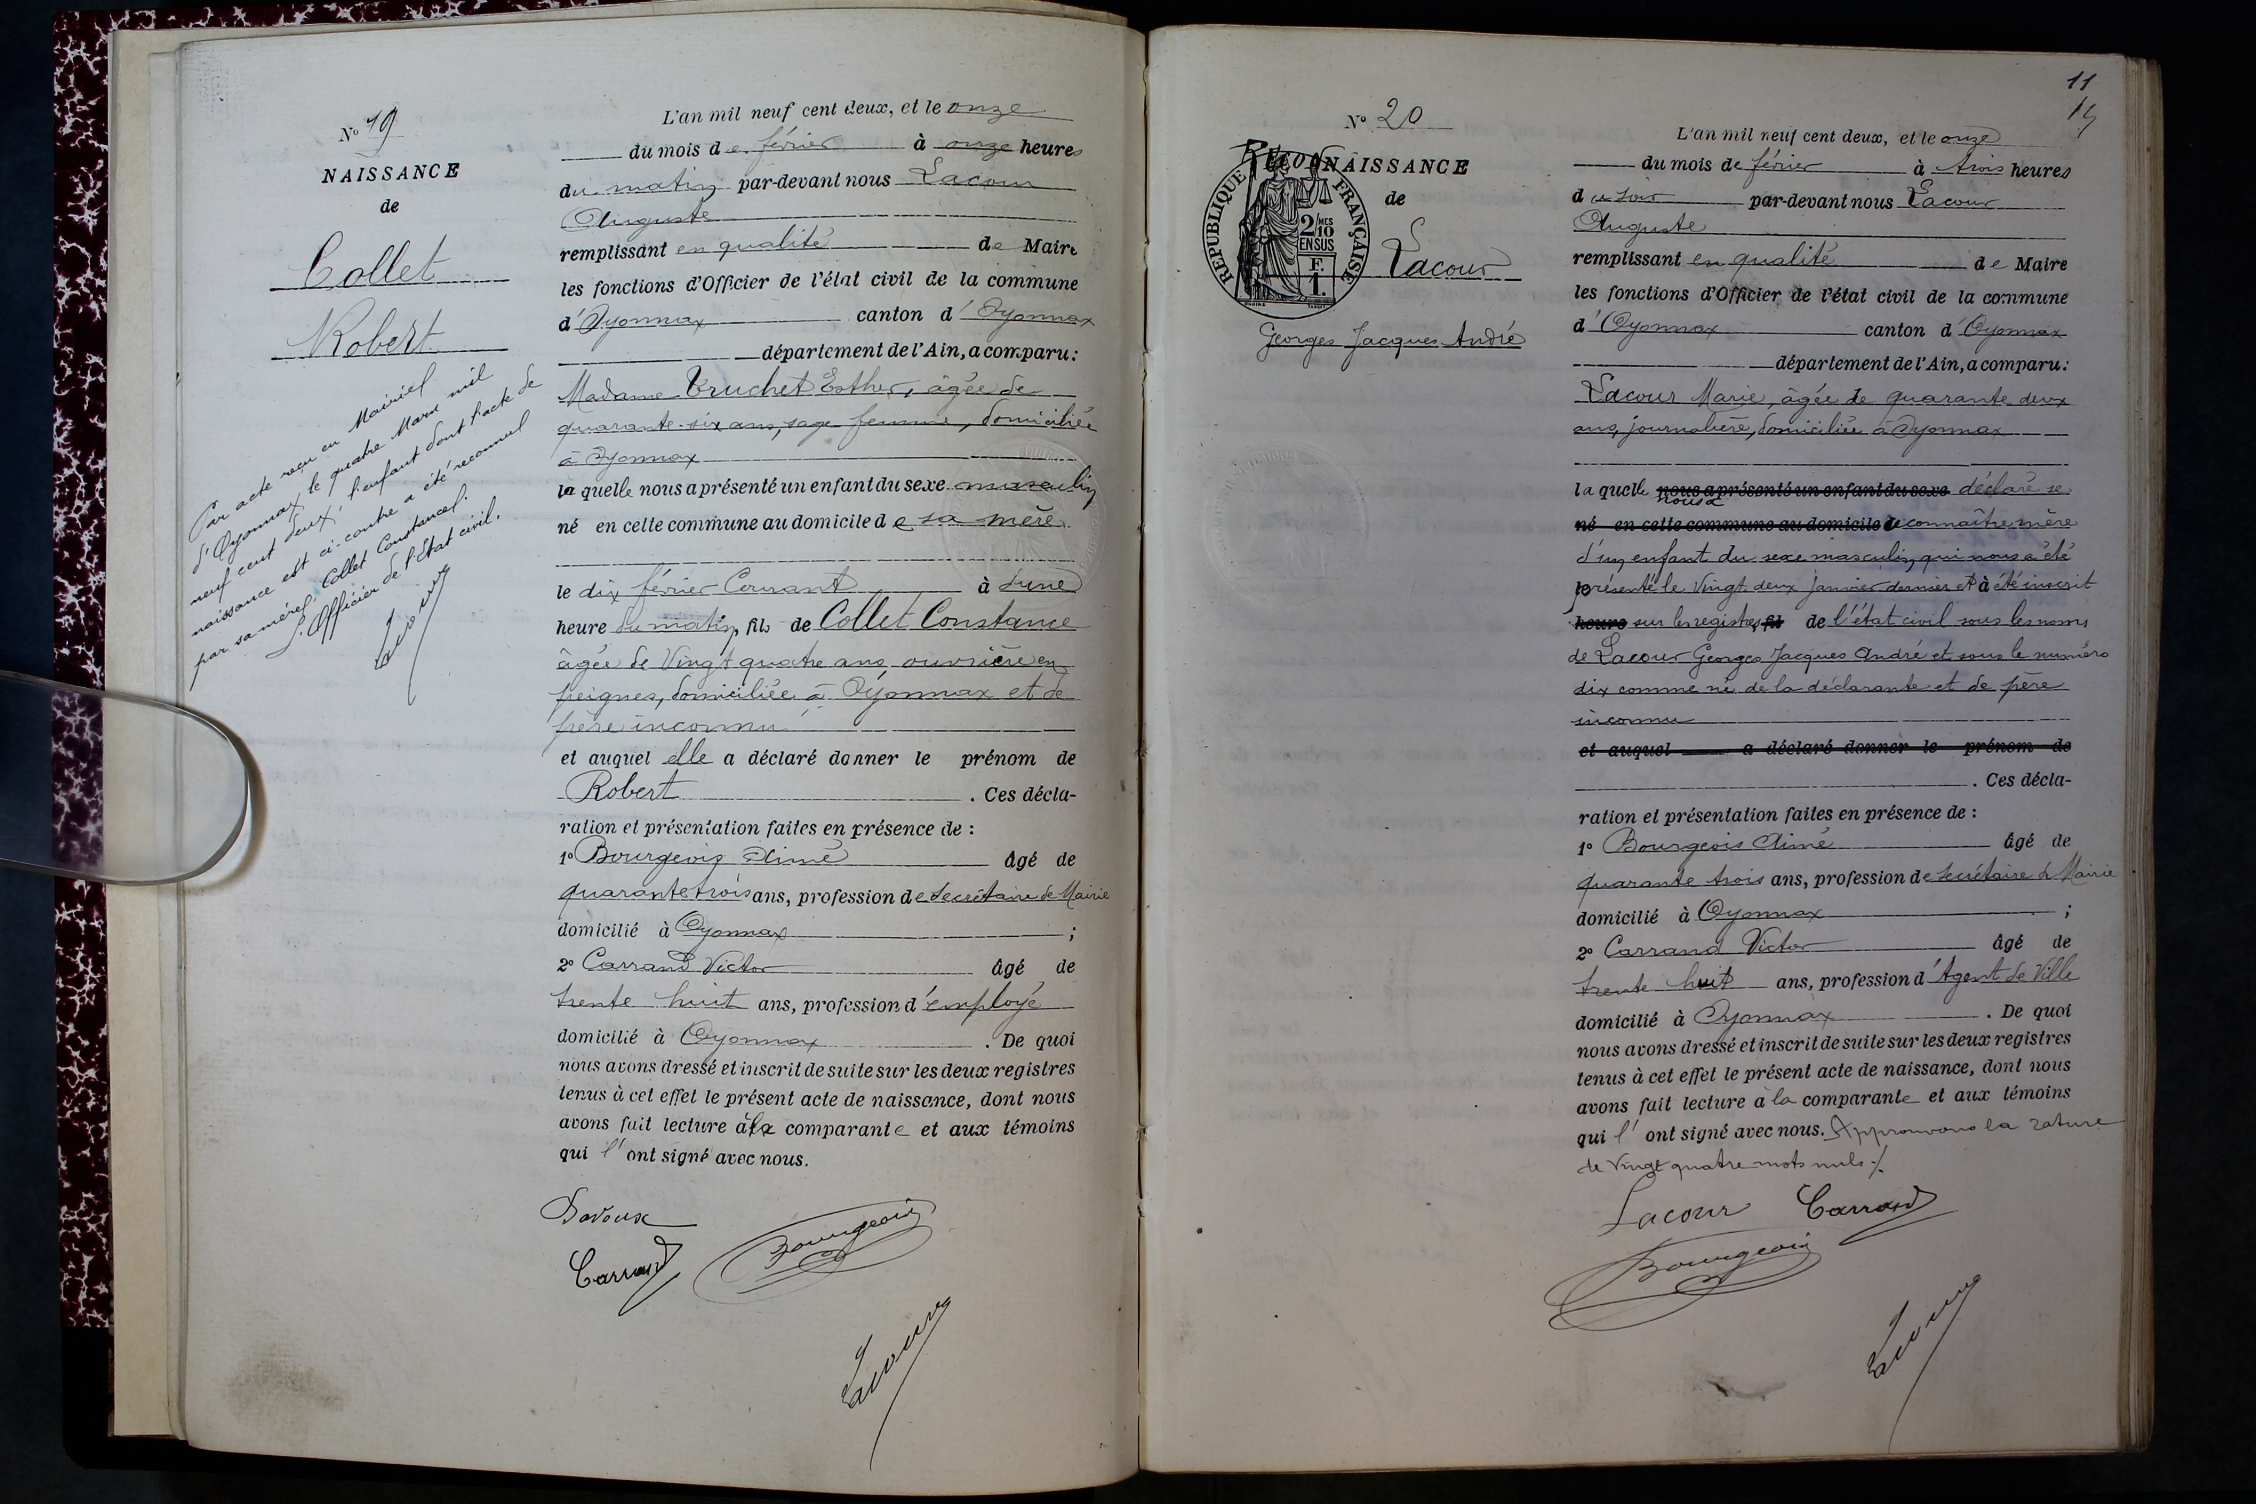 N° 19
NAISSANCE
de
Collet
Robert
Par acte reçu en Mairie
d'Oyonnax, le quatre Mars mil
neuf cent deux, l'enfant dont l'acte de
naissance est ci-contre a été reconnu
par sa mère, Collet Constance.
L'Officier de l'état civil.
Lacour
L'an mil neuf cent deux, et le onze
du mois de février à onze heures
du matin par-devant nous Lacour
Auguste
remplissant en qualité de Maire
les fonctions d'Officier de l'état civil de la commune
d'Oyonnax canton d'Oyonnax
département de l'Ain, a comparu :
Madame Truchet Esther, âgée de
quarante-six ans, sage femme, domiciliée
à Oyonnax
la quelle nous a présenté un enfant du sexe masculin
né en cette commune au domicile de sa mère
le dix février Courant à une
heure du matin, fils de Collet Constance
âgée de Vingt quatre ans, ouvrière en
peignes, domiciliée à Oyonnax et de
père inconnu
et auquel elle a déclaré donner le prénom de
Robert . Ces décla-
ration et présentation faites en présence de :
1° Bourgeois Aimé âgé de
quarante trois ans, profession de Secrétaire de Mairie
domicilié à Oyonnax ;
2° Carrand Victor âgé de
trente huit ans, profession d'employé
domicilié à Oyonnax . De quoi
nous avons dressé et inscrit de suite sur les deux registres
tenus à cet effet le présent acte de naissance, dont nous
avons fait lecture à la comparante et aux témoins
qui l'ont signé avec nous.
Davoux
Carrand Bourgeois
Lacour
11
N° 20
RECONNAISSANCE
de
Lacour
Georges Jacques André
REPUBLIQUE FRANÇAISE
2/10 MES
EN SUS
F.
1.
L'an mil neuf cent deux, et le onze
du mois de février à trois heures
du soir par-devant nous Lacour
Auguste
remplissant en qualité de Maire
les fonctions d'Officier de l'état civil de la commune
d'Oyonnax canton d'Oyonnax
département de l'Ain, a comparu :
Lacour Marie, âgée de quarante deux
ans, journalière, domiciliée à Oyonnax
la quelle nous a présenté un enfant du sexe déclaré se
nous a
né en cette commune au domicile de connaître mère
d'un enfant du sexe masculin, qui nous a été
présenté le Vingt deux janvier dernier et à été inscrit
heure sur les registres, fil de l'état civil sous les noms
de Lacour Georges Jacques André et sous le numéro
dix comme né de la déclarante et de père
inconnu
et auquel a déclaré donner le prénom de
. Ces décla-
ration et présentation faites en présence de :
1° Bourgeois Aimé âgé de
quarante trois ans, profession de Secrétaire de Mairie
domicilié à Oyonnax ;
2° Carrand Victor âgé de
trente huit ans, profession d'Agent de Ville
domicilié à Oyonnax . De quoi
nous avons dressé et inscrit de suite sur les deux registres
tenus à cet effet le présent acte de naissance, dont nous
avons fait lecture à la comparante et aux témoins
qui l'ont signé avec nous. Approuvons la rature
de Vingt quatre mots nuls ./.
Lacour Carrand
Bourgeois
Lacour